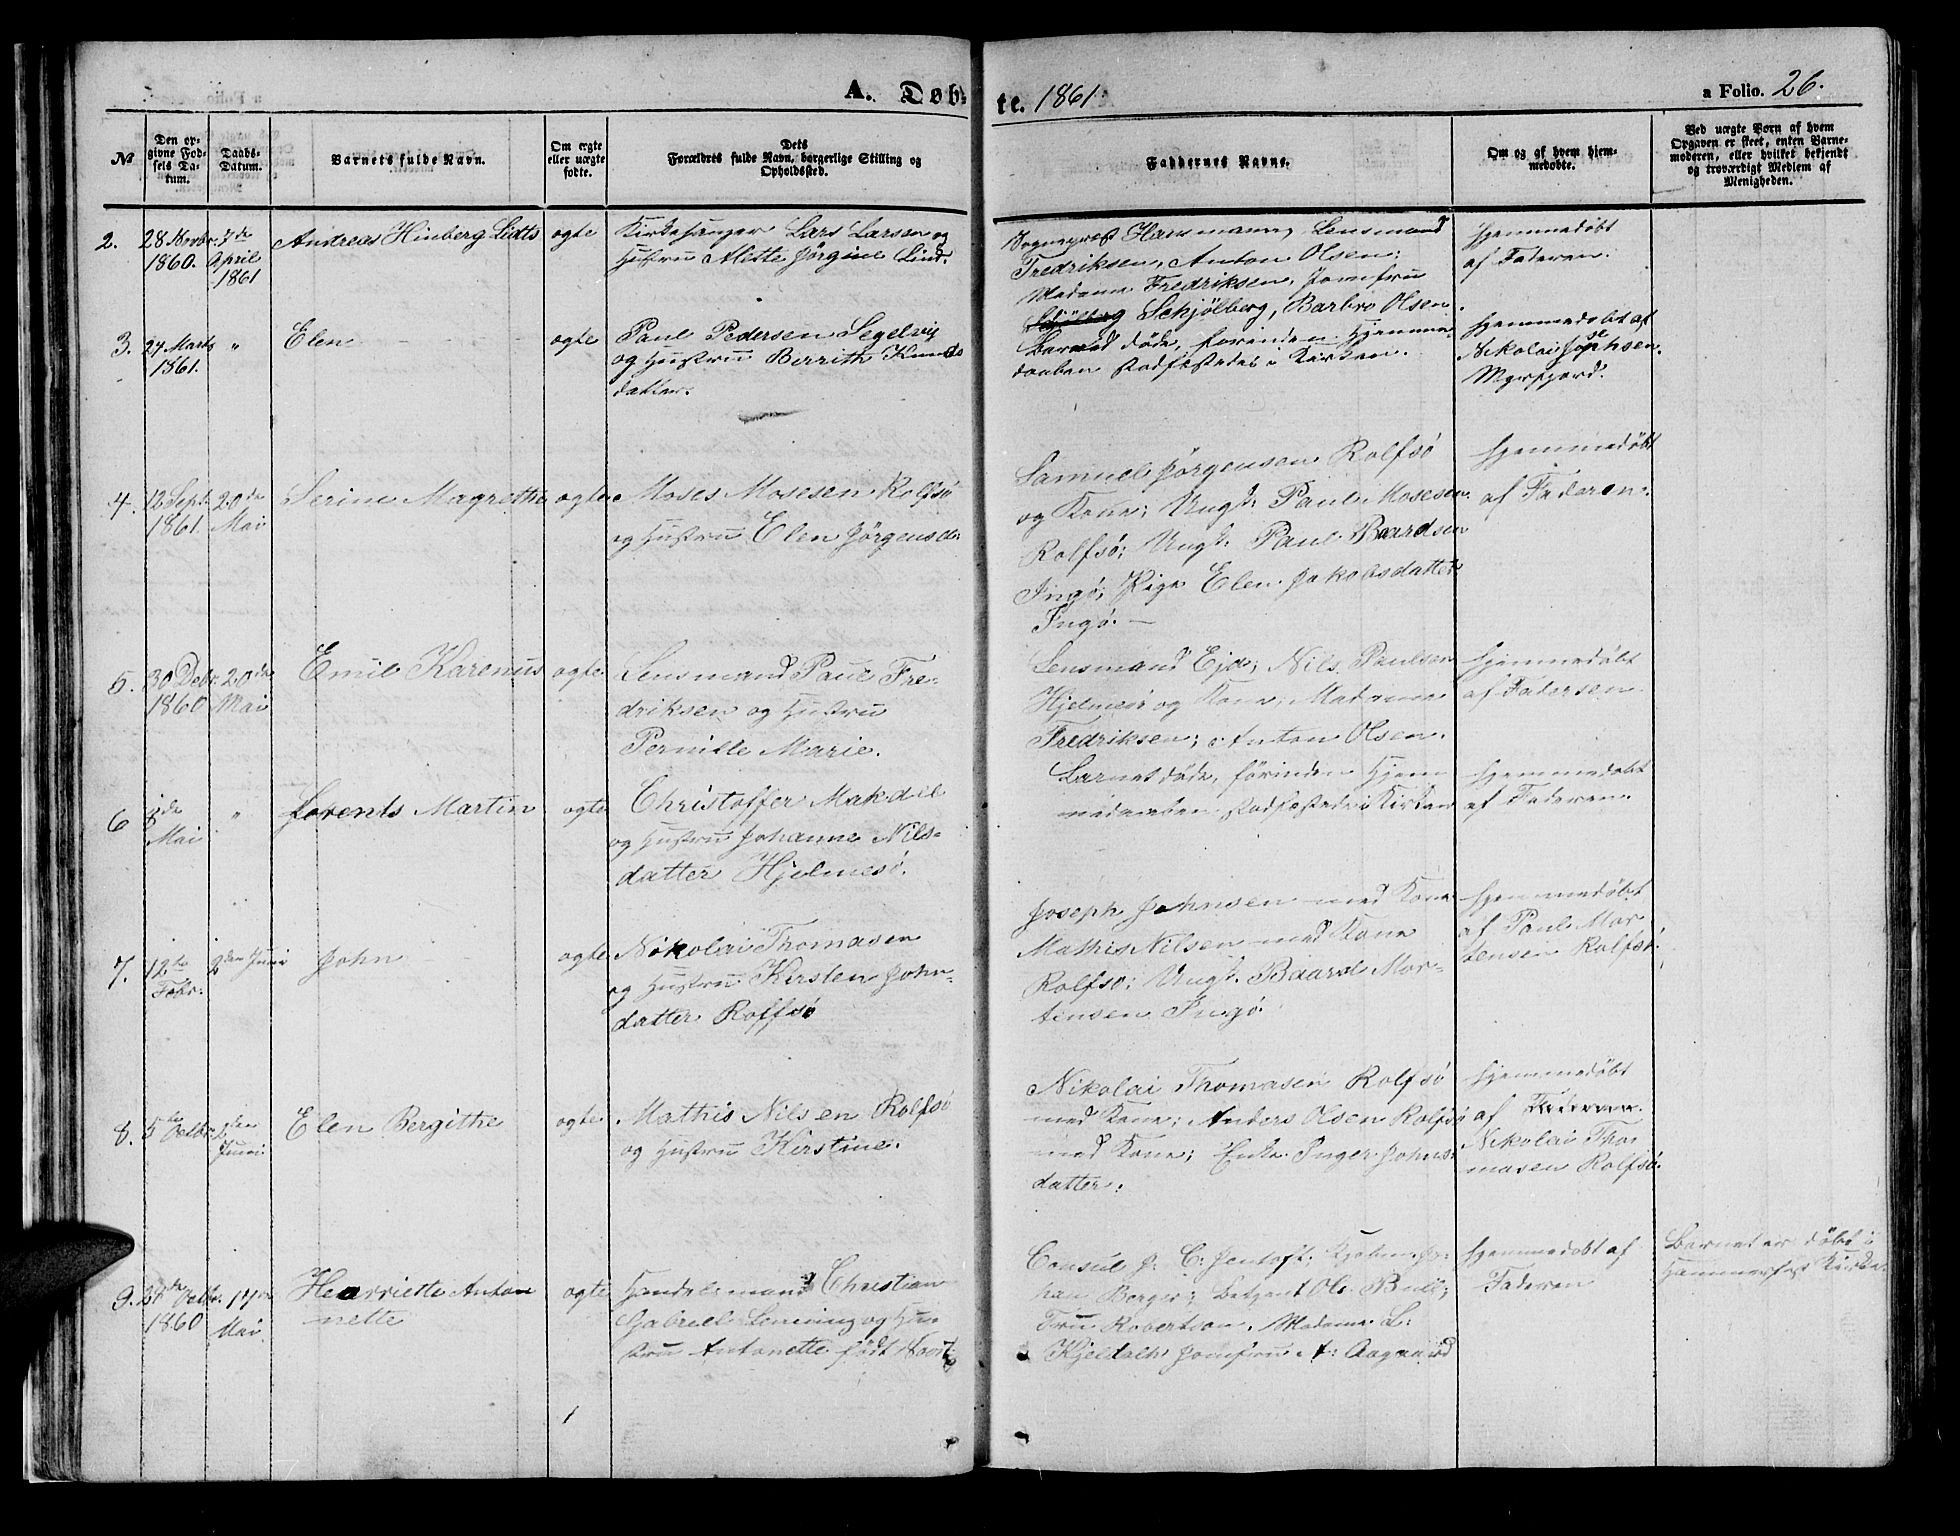 A. Døb-
te. 1861.
a Folio. 26.
No
Den op-
givne Fød-
sels Da-
tum.
Daabs-
Datum.
Barnets fulde Navn.
Om ægte
eller uægte
fødte.
Dets
Forældres fulde Navn, borgerlige Stilling og
Opholdssted.
Faddernes Navne.
Om og af hvem hjem-
medøbte.
Ved uægte Børn af hvem
Opgaven er skeet, enten Barne-
moderen, eller hvilket bekjendt
og troværdigt Medlem af
Menigheden.
2.
28 Novbr.
1860.
7de
April
1861
Andreas Hinberg Lidts
ægte
Kirkesanger Lars Larsen og
Hustru Alette Jørgine Lind.
Sogneprest Hansmann, Lensmand
Fredriksen, Anton Olsen;
Madame Fredriksen, Jomfru
Schjølberg, Barbro Olsen
Hjemmedøbt
af Faderen.
3.
27 Marts
1861.
"
Elen
ægte
Paul Pedersen Segelvig
og Hustru Berrith Knuds
datter.
Barnet døde, forinden Hjemme-
daaben stadfæstedes i Kirken.
Hjemmedøbt af
Nikolai Josephsen
Myrfjord.
4.
12 Sept.
1861.
20de
Mai
Serine Magrethe
ægte
Moses Mosesen Rolfsø
og Hustru Elen Jørgensd.
Samuel Jørgensen Rolfsø
og Kone; Ungk. Paul Mosesen
Rolfsø; Ungk. Paul Baardsen
Ingø; Pige Elen Jakobsdatter
Ingø. —
Hjemmedøbt
af Faderen.
5.
30 Debr.
1860
20de
Mai
Emil Karenus
ægte
Lensmand Paul Fre-
driksen og Hustru
Pernille Marie.
Lensmand Ejde; Nils Paulsen
Hjelmesø og Kone, Madame
Fredriksen; Anton Olsen.
Hjemmedøbt
af Faderen
6
de
Mai
"
Lorents Martin
ægte
Christoffer Makdel
og Hustru Johanne Nils-
datter Hjelmesø.
Barnet døde, førinden Hjem
medaaben stadfæstedes i Kirken
Hjemmedøbt
af Faderen.
7.
12te
Febr.
2den Juni
John
ægte
Nikolai Thomasen
og Hustru Kirsten John-
datter Rolfsø
Joseph Johnsen med Kone
Mathis Nilsen med Kone
Rolfsø; Ungk. Baard Mor-
tensen Ingø.
Hjemmedøbt
af Paul Mor
tensen Rolfsø.
8.
5te Octbr.
2den
Juni
Elen Bergithe
ægte
Mathis Nilsen Rolfsø
og Hustru Kirstine.
Nikolai Thomasen Rolfsø
med Kone; Anders Olsen Rolfsø
med Kone; Enke Inger Johns
datter.
Hjemmedøbt
af Faderen
Nikolai Tho
masen Rolfsø.
9.
Octbr.
1860
17de
Mai
Henriette Anton
nette
ægte
Handelsmand Christian
Gabriel og Hu
stru Antonette født
Consul J. C. Jentoft; Kjøbm. Jo-
han Berger; Betjent Ole Bull;
Fru Robertson, Madame L.
Kjeldseth Jomfru A. Aagaard
Hjemmedøbt af
Faderen
Barnet er døbt i
Hammerfest Kirke
1